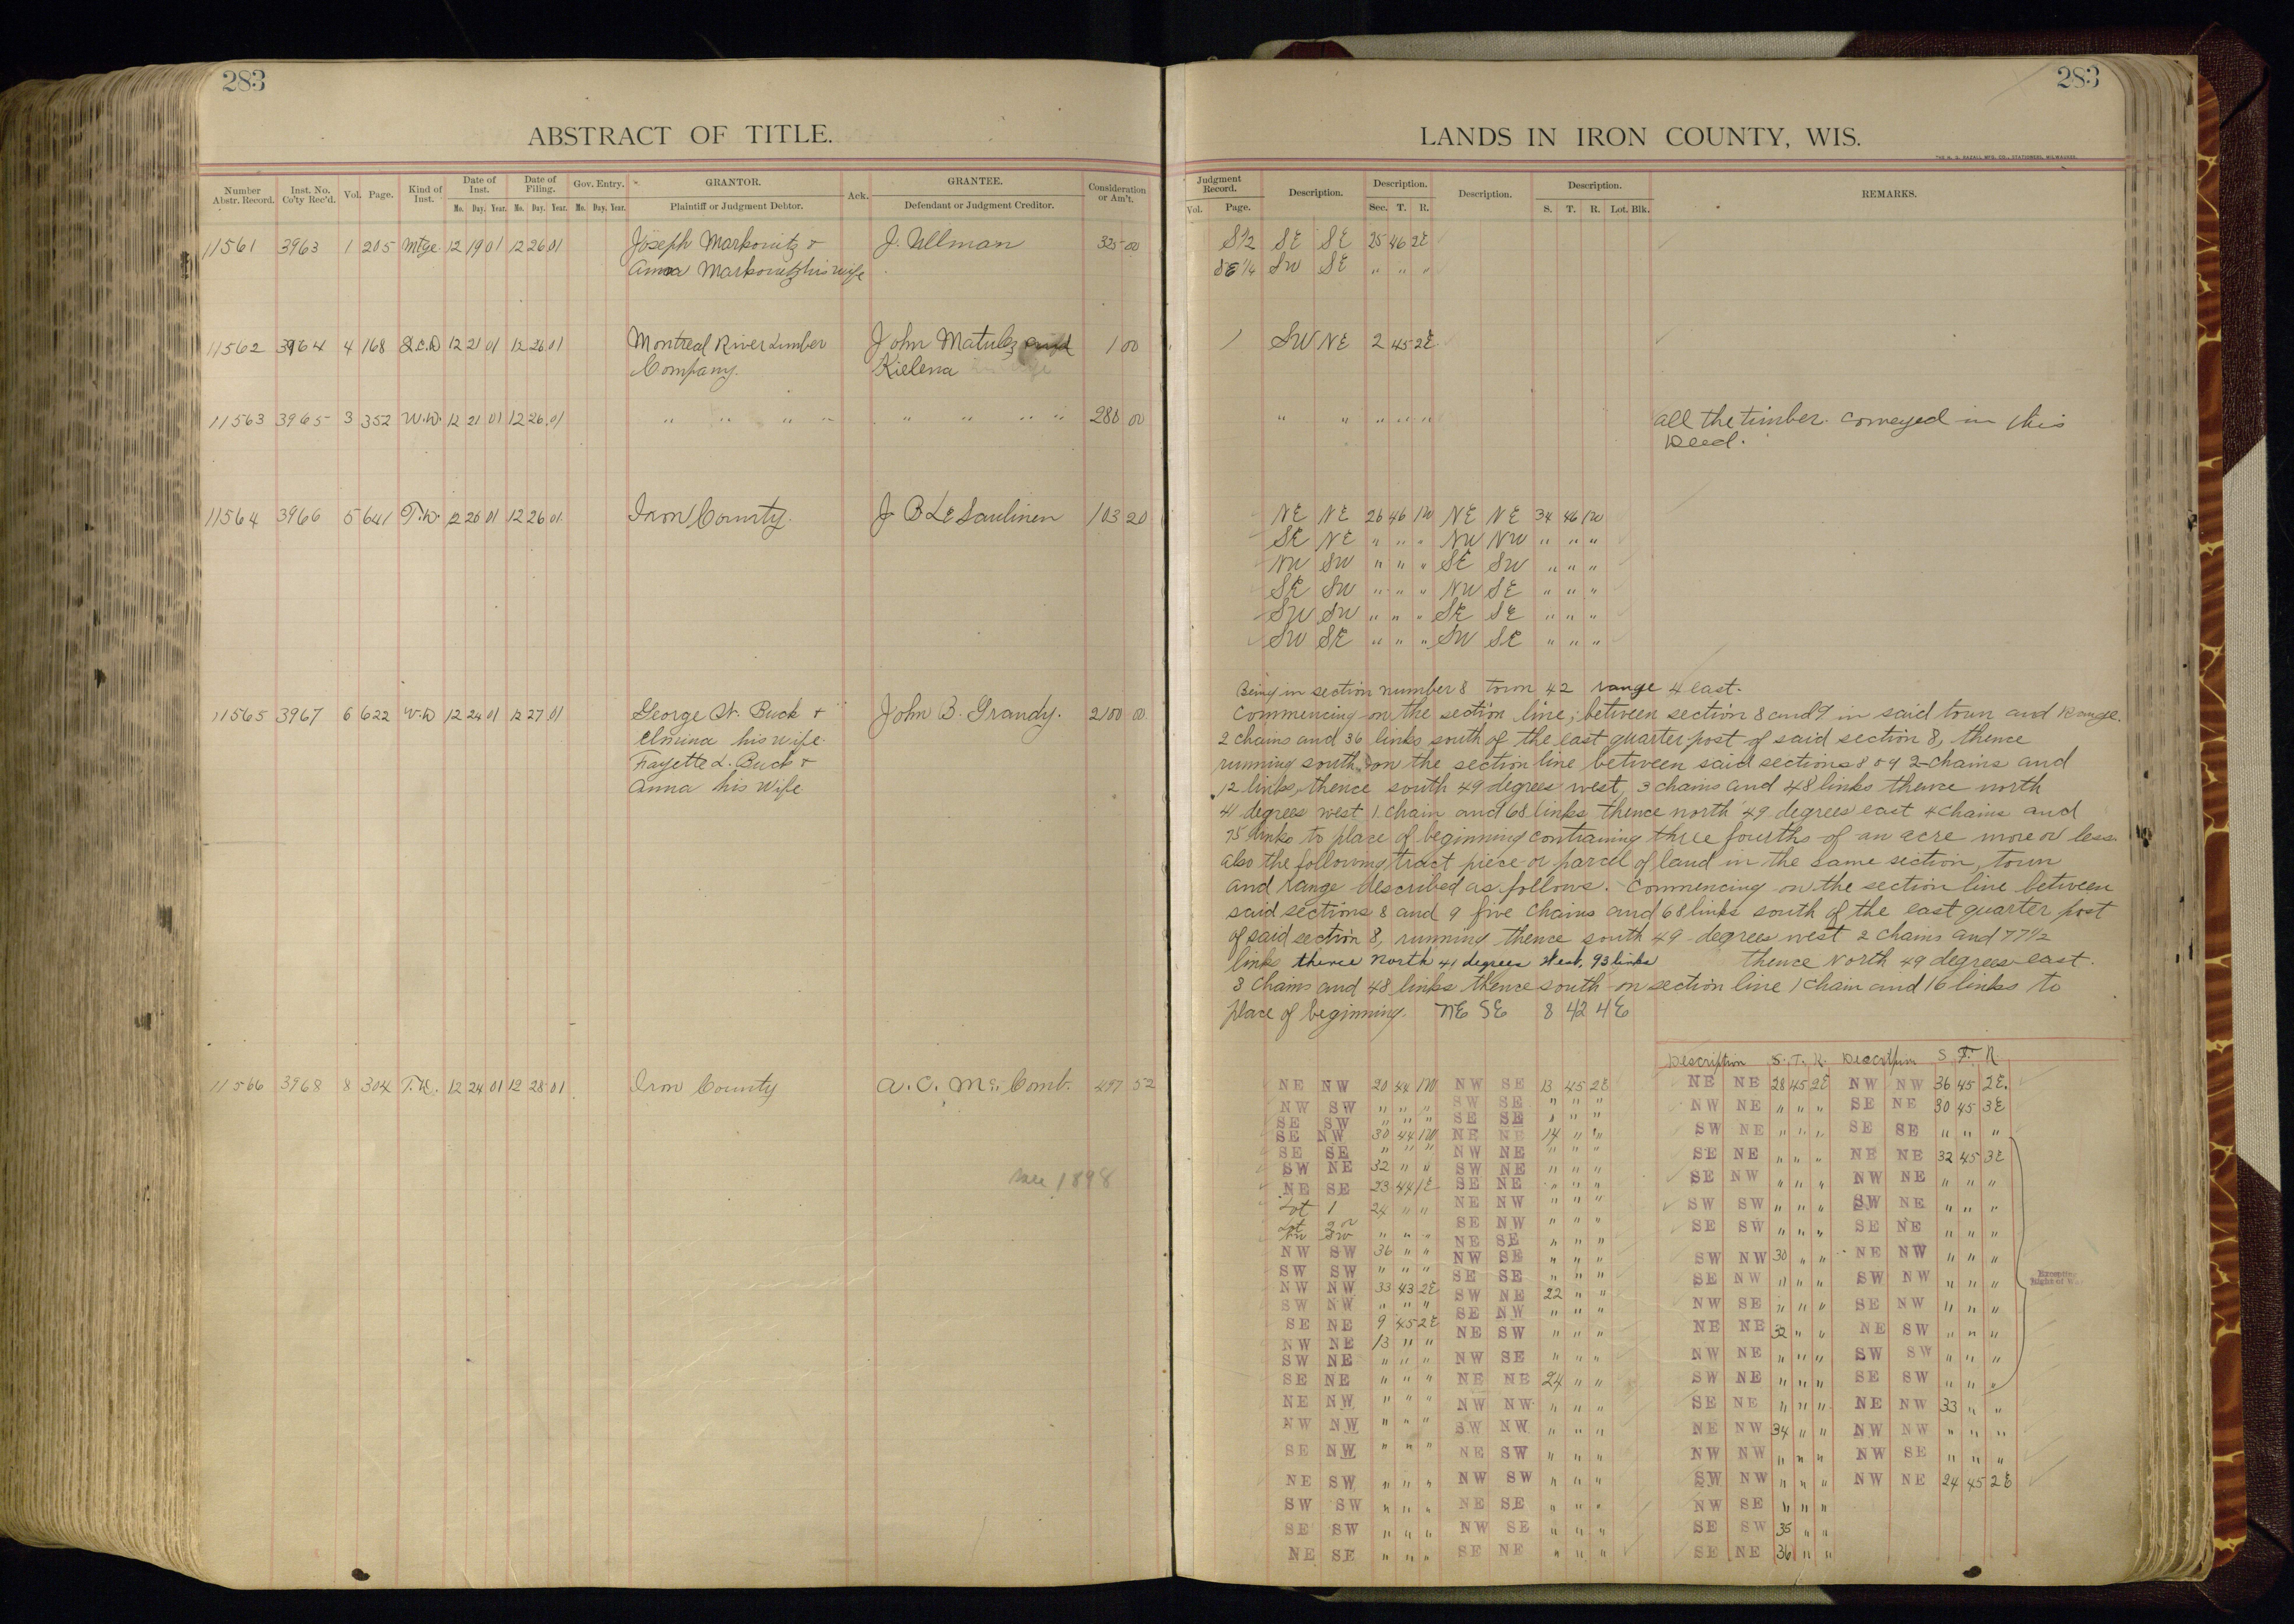 283
ABSTRACT OF TITLE.
Number Abstr. Record. Inst. No. Co'ty Rec'd. Vol. Page. Kind of Inst. Date of Inst. Date of Filing. Gov. Entry. GRANTOR. Ack. GRANTEE. Consideration or Am't.
Mo. Day. Year. Mo. Day. Year. Mo. Day. Year. Plaintiff or Judgment Debtor. Defendant or Judgment Creditor.
11561 3963 1 205 Mtge. 12 19 01 12 26 01 Joseph Markovitz & J. Ullman 325 00
Anna Markovitz his wife
11562 3964 4 168 Q.C.D 12 21 01 12 26 01 Montreal River Lumber John Matulez and 1 00
Company. Kielena his wife
11563 3965 3 352 W.D. 12 21 01 12 26 01 " " " " " " " " 280 00
11564 3966 5 641 T.D. 12 26 01 12 26 01 Iron County. J B Le Saulinen 103 20
11565 3967 6 622 W.D 12 24 01 12 27 01 George W. Buck & John B. Grandy. 2100 00
Elmina his wife.
Fayette L. Buck &
Anna his wife
11566 3968 8 304 T.D. 12 24 01 12 28 01 Iron County A. O. Mc. Comb. 497 52
Sale 1898
283
LANDS IN IRON COUNTY, WIS.
THE H. G. RAZALL MFG. CO., STATIONERS, MILWAUKEE.
Judgment Record. Description. Description. Description. Description. REMARKS.
Vol. Page. Sec. T. R. S. T. R. Lot. Blk.
S1/2 SE SE 25 46 2E
SE1/4 SW SE " " "
SW NE 2 45 2E
" " " " " all the timber conveyed in this
Deed.
NE NE 26 46 1W NE NE 34 46 1W
SE NE " " " NW NW " " "
NW SW " " " SE SW " " "
SE SW " " " NW SE " " "
SW SW " " " SE SE " " "
SW SE " " " SW SE " " "
Being in section number 8 town 42 range 4 east.
Commencing on the section line, between section 8 and 9 in said town and Range.
2 chains and 36 links south of the east quarter post of said section 8, thence
running south on the section line between said sections 8 & 9 2 chains and
12 links, thence south 49 degrees west, 3 chains and 48 links thence north
41 degrees west 1 chain and 68 links thence north 49 degrees east 4 chains and
75 links to place of beginning contraining three fourths of an acre more or less
also the following tract piece or parcel of land in the same section, town
and range described as follows. Commencing on the section line between
said sections 8 and 9 five chains and 68 links south of the east quarter post
of said section 8, running thence south 49 degrees west 2 chains and 77 1/2
links thence North 41 degrees West, 93 links thence North 49 degrees east.
3 chains and 48 links thence south on section line 1 chain and 16 links to
place of beginning. NE SE 8 42 4E
Description S. T. R. Description S. T. R.
NE NW 20 44 1W NW SE 13 45 2E NE NE 28 45 2E NW NW 36 45 2E.
NW SW " " " SW SE " " " NW NE " " " SE NE 30 45 3E
SE SW " " " SE SE " " " SW NE " " " SE SE " " "
SE NW 30 44 1W NE NE 14 " " SE NE " " " NE NE 32 45 3E
SE SE " " " NW NE " " " SE NW " " " NW NE " " "
SW NE 32 " " SW NE " " " SW SW " " " SW NE " " "
NE SE 23 44 1E SE NE " " " SE SW " " " SE NE " " "
Lot 1 24 " " NE NW " " " SW NW 30 " " NE NW " " "
Lot 2 or SE NW " " " SE NW " " " SW NW " " "
NW SW " " " NE SE " " " NW SE " " " SE NW " " "
NW SW 36 " " NW SE " " " NE NE 32 " " NE SW " " "
SW SW " " " SE SE " " " NW NE " " " SW SW " " "
NW NW 33 43 2E SW NE 22 " " SW NE " " " SE SW " " "
SW NW " " " SE NW " " " SE NE " " " NE NW 33 " "
SE NE 9 45 2E NE SW " " " NE NW 34 " " NW NW " " "
NW NE 13 " " NW SE " " " NW NW " " " NW SE " " "
SW NE " " " NE NE 24 " " SW NW " " " NW NE 24 45 2E
SE NE " " " NW NW " " " NW SE " " "
NE NW " " " SW NW " " " SE SW 35 " "
NW NW " " " NE SW " " " SE NE 36 " "
SE NW " " " NW SW " " "
NE SW " " " NE SE " " "
SW SW " " " NW SE " " "
SE SW " " " SE NE " " "
NE SE " " "
Excepting
Right of Way